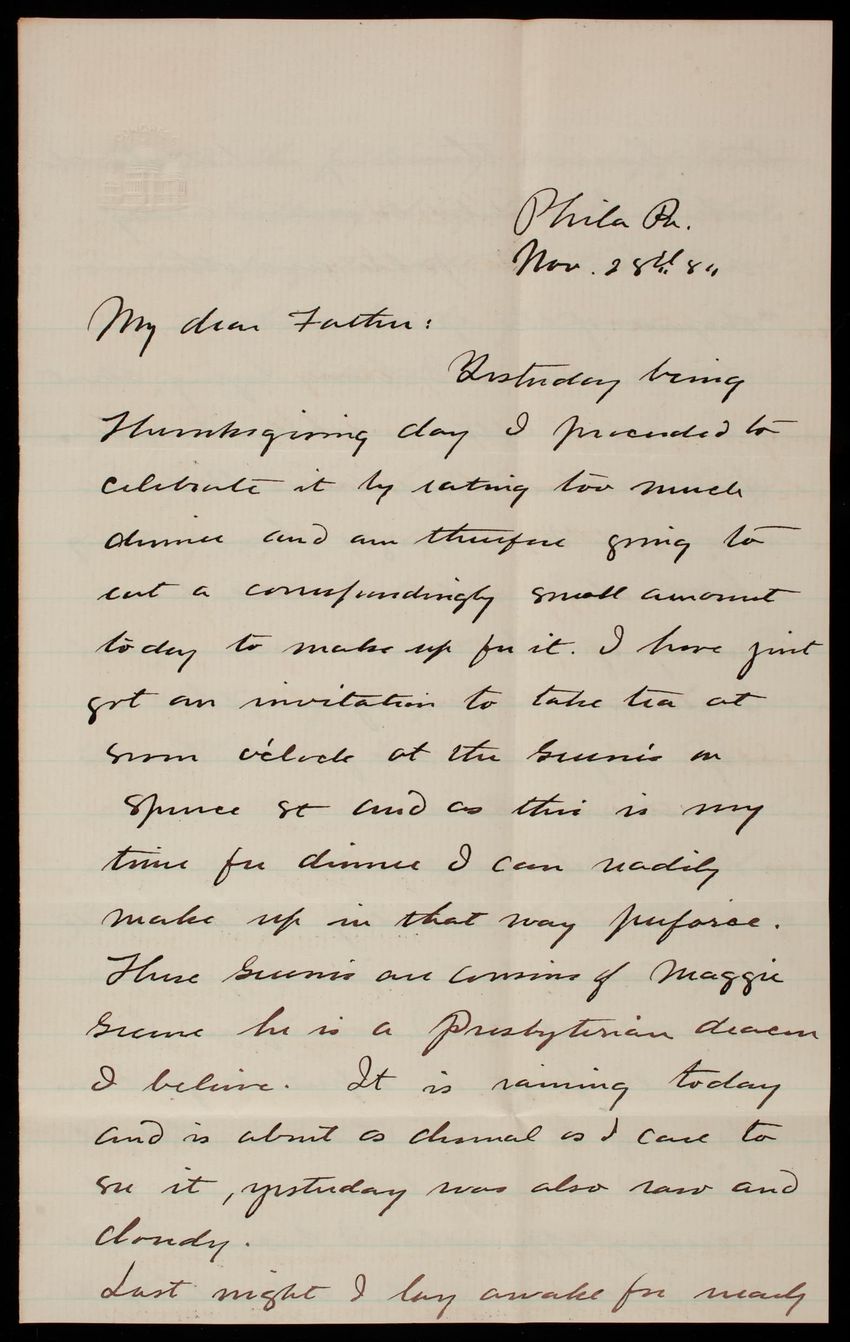 Phila Pa.
Nov. 28th 84
My dear Father:
Yesterday being
Thanksgiving day I proceeded to
celebrate it by eating too much
dinner and am therefore going to
eat a correspondingly small amount
today to make up for it. I have just
got an invitation to take tea at
seven o'clock at the Greene's on
Spruce St and as this is my
time for dinner I can readily
make up in that way perforce.
These Greenes are cousins of Maggie
Greene he is a Presbyterian deacon
I believe. It is raining today
and is about as dismal as I care to
see it, yesterday was also raw and
cloudy.
Last night I lay awake for nearly